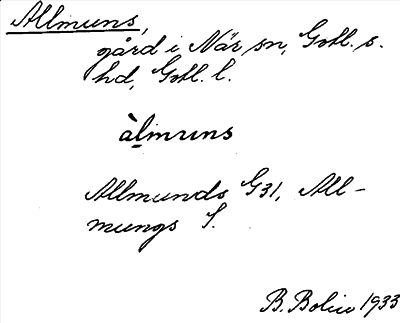 Allmuns,
gård i När sn, Gotl. s.
hd, Gotl. l.
àlmuns
Allmunds G31, All-
mungs S.
B. Bolin 1933